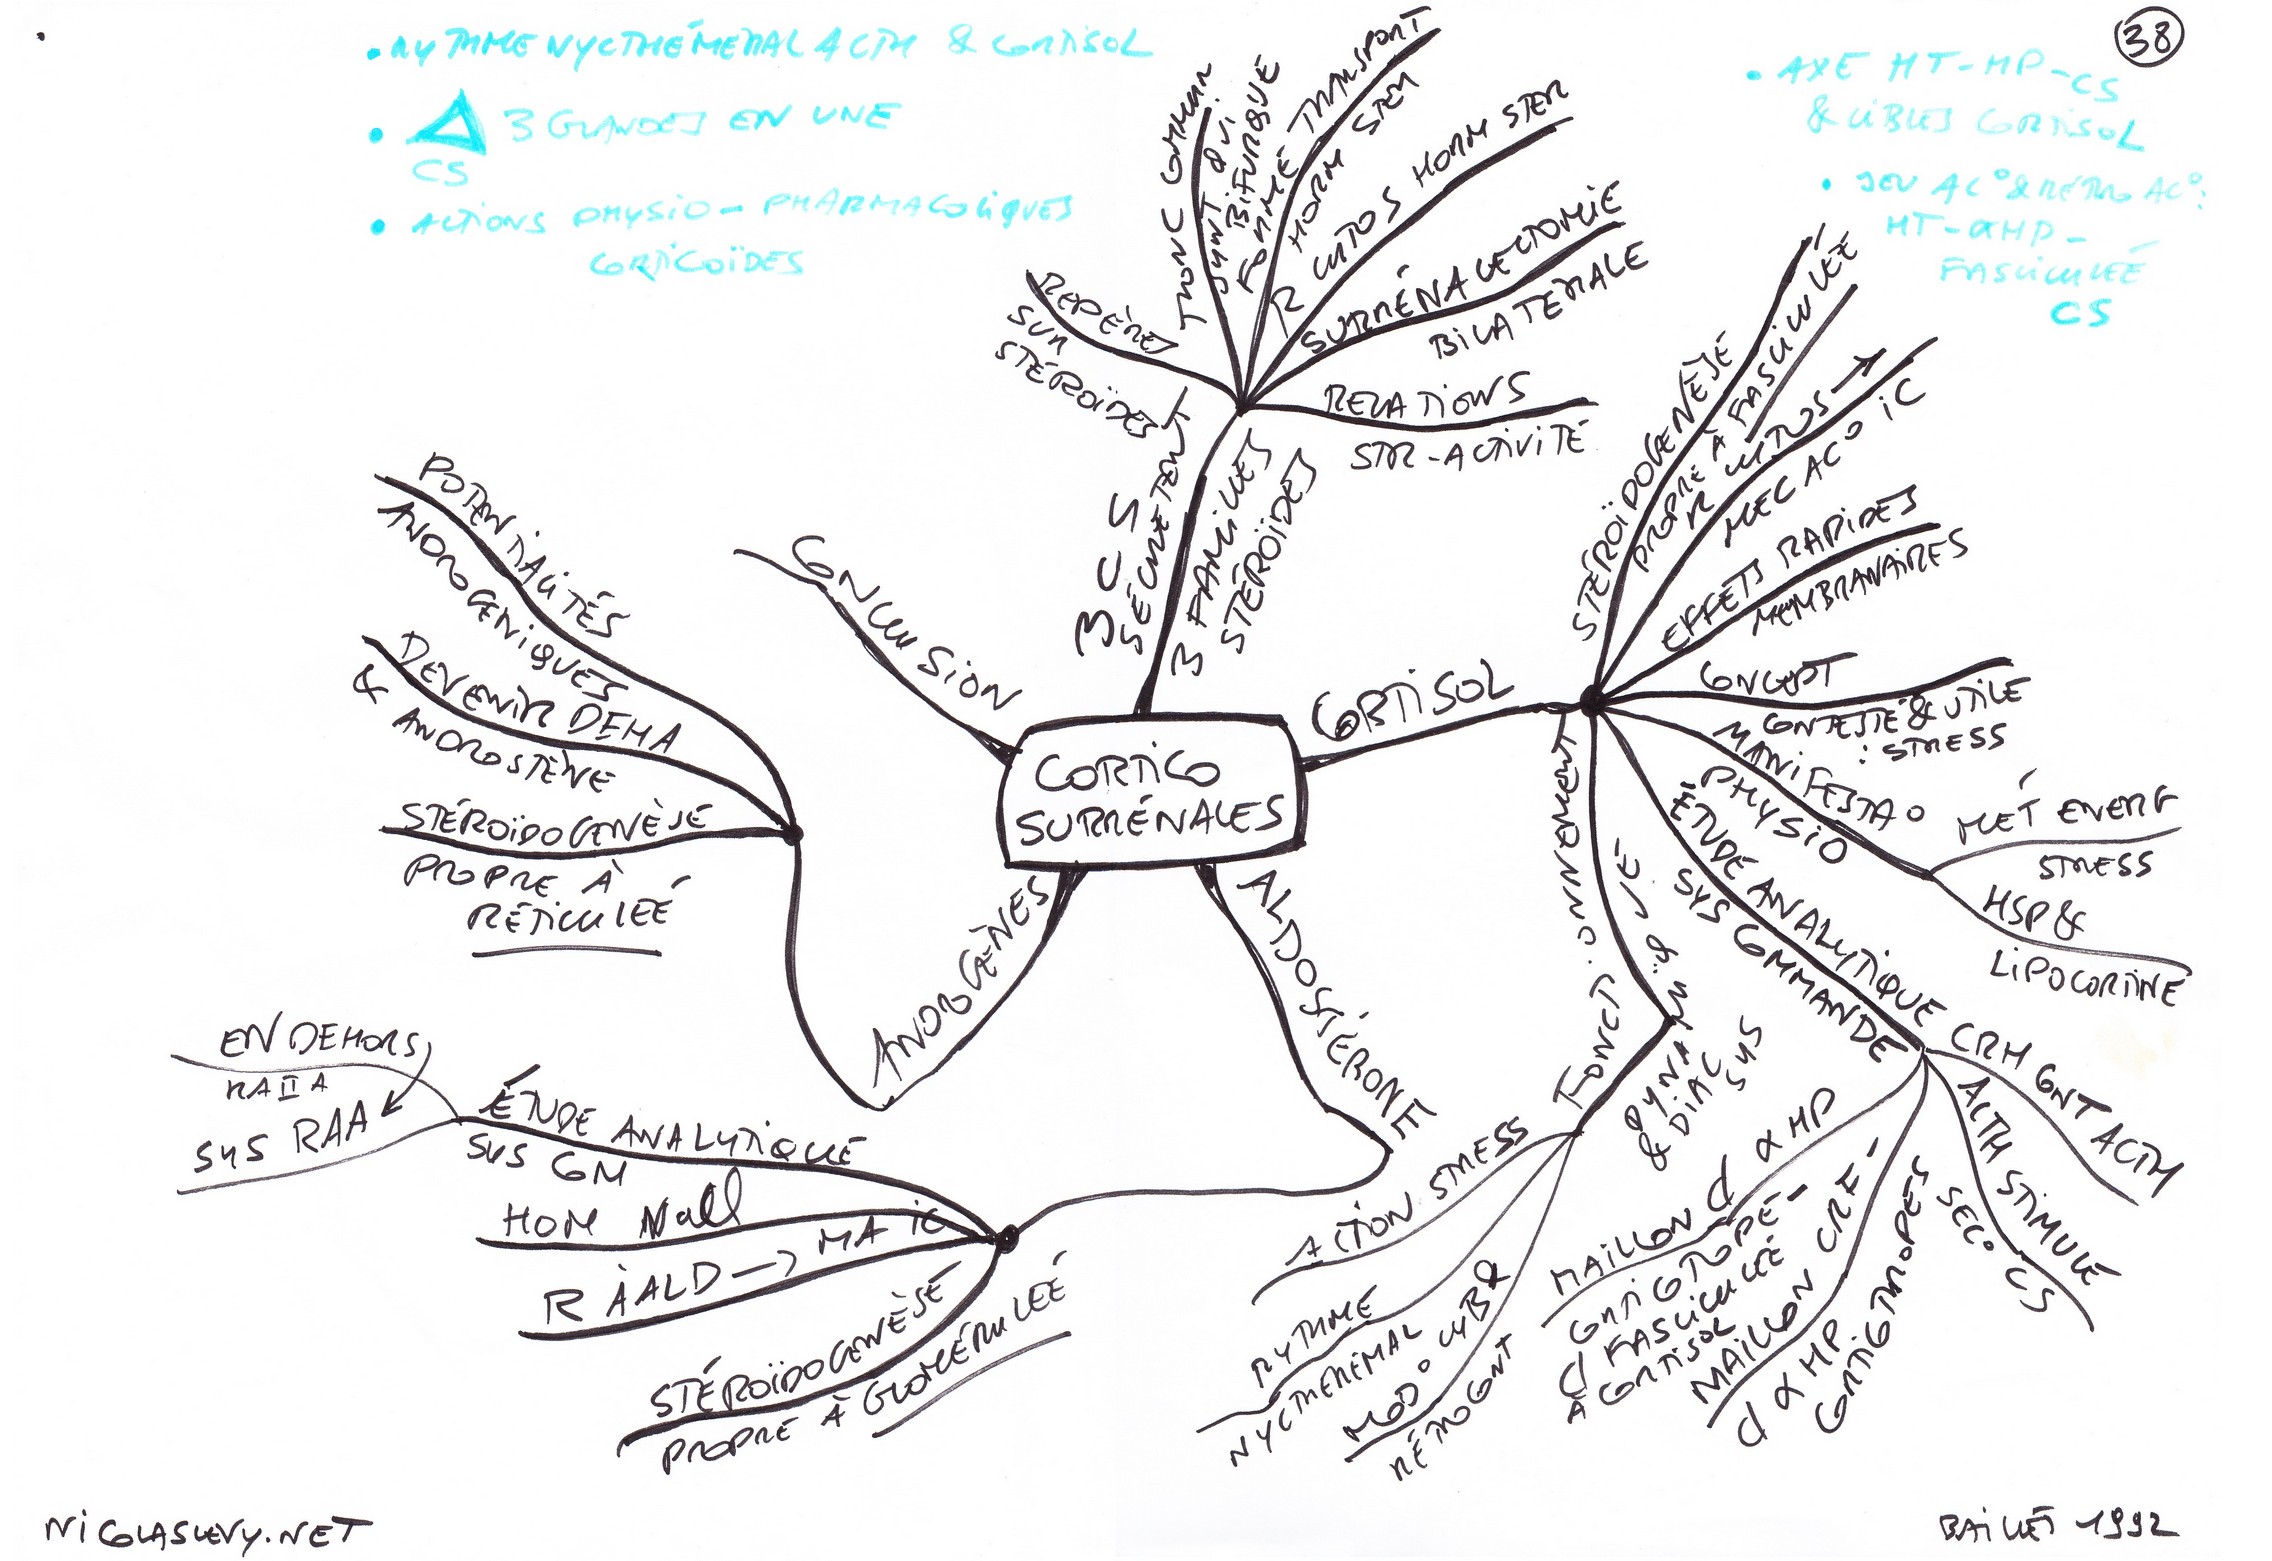 38
• RYTHME NYCTHÉMÉRAL ACTH & CORTISOL
• 3 GLANDES EN UNE
CS
• ACTIONS PHYSIO-PHARMACOLOGIQUES
CORTICOÏDES
• AXE HT-HP-CS
& CIBLES CORTISOL
• JEU AC° & RÉTRO AC°:
HT-αHP-
FASCICULÉE
CS
CORTICO
SURRÉNALES
3 CS
SÉCRÈTENT
3 FAMILLES
STÉROÏDES
REPÈRES
SUR
STÉROÏDES
TRONC COMMUN
SYNT QUI
BIFURQUE
FORME TRANSPORT
HORM STER
R CYTOS HORM STER
SURRÉNALECTOMIE
BILATÉRALE
RELATIONS
STR-ACTIVITÉ
CORTISOL
STÉROÏDOGENÈSE
PROPRE À FASCICULÉE
R CYTOS →
MEC AC° IC
EFFETS RAPIDES
MEMBRANAIRES
CONCEPT
CONTESTÉ & UTILE
: STRESS
MANIFESTA°
PHYSIO
MÉT ENERG
STRESS
HSP &
LIPOCORTINE
ÉTUDE ANALYTIQUE
SYS COMMANDE
CRH CONT ACTH
ACTH STIMULE
SEC° CS
MAILLON CRF-
d αHP
CORTICOTROPES
MAILLON d αHP
CORTICOTROPE-
d FASCICULÉE
À CORTISOL
FONCT°NNEMENT
DYNA
& DIAC
SYS
ACTION STRESS
RYTHME
NYCTHÉMÉRAL
MOD°
RÉTROCONT
ALDOSTÉRONE
ÉTUDE ANALYTIQUE
SYS COM
EN DEHORS
RAIIA
SYS RAA
HOM Nall
R À ALD → MA IC
STÉROÏDOGENÈSE
PROPRE À GLOMÉRULÉE
ANDROGÈNES
POTENTIALITÉS
ANDROGENIQUES
DEVENIR DEHA
& ANDROSTÈNE
STÉROÏDOGENÈSE
PROPRE À
RÉTICULÉE
CONCLUSION
NICOLASLEVY.NET
BAILLET 1992